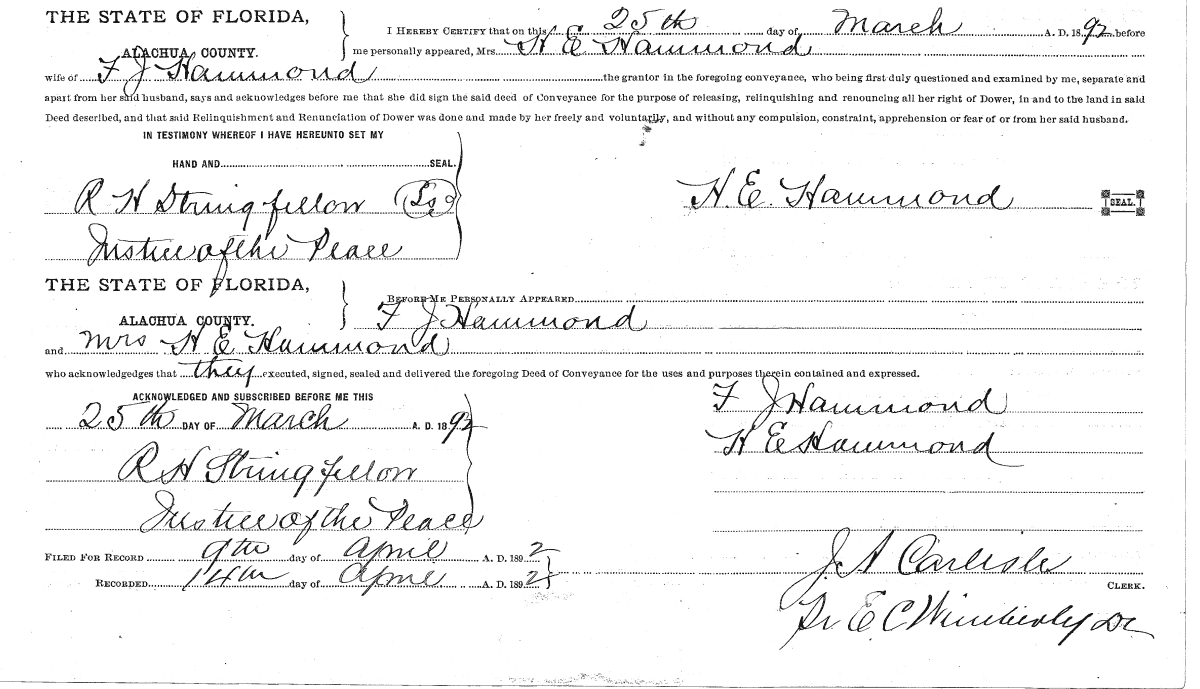 THE STATE OF FLORIDA,
ALACHUA COUNTY.
I HEREBY CERTIFY that on this 25th day of March A. D. 1892 before
me personally appeared, Mrs H E Hammond
wife of F J Hammond the grantor in the foregoing conveyance, who being first duly questioned and examined by me, separate and
apart from her said husband, says and acknowledges before me that she did sign the said deed of Conveyance for the purpose of releasing, relinquishing and renouncing all her right of Dower, in and to the land in said
Deed described, and that said Relinquishment and Renunciation of Dower was done and made by her freely and voluntarily, and without any compulsion, constraint, apprehension or fear of or from her said husband.
IN TESTIMONY WHEREOF I HAVE HEREUNTO SET MY
HAND AND SEAL.
R H Stringfellow (Ls)
Justice of the Peace
H. E. Hammond SEAL.
THE STATE OF FLORIDA,
ALACHUA COUNTY.
BEFORE ME PERSONALLY APPEARED
F J Hammond
and Mrs H E Hammond
who acknowledgedges that they executed, signed, sealed and delivered the foregoing Deed of Conveyance for the uses and purposes therein contained and expressed.
ACKNOWLEDGED AND SUBSCRIBED BEFORE ME THIS
25th DAY OF March A. D. 1892
R H Stringfellow
Justice of the Peace
F J Hammond
H E Hammond
FILED FOR RECORD 9th day of April A. D. 1892
RECORDED 14th day of April A. D. 1892
J. A Carlisle
CLERK.
E. C Wimberly DC